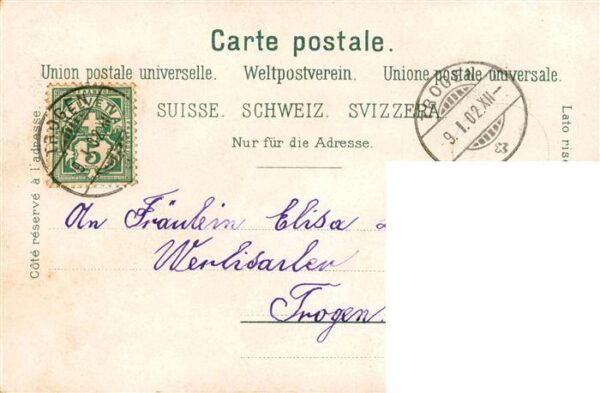 Carte postale.
Union postale universelle. Weltpostverein. Unione postale universale.
SUISSE. SCHWEIZ. SVIZZERA.
Nur für die Adresse.
Côté réservé à l'adresse.
Lato rise
TROGEN
HELVETIA
5
TROGEN
-9.I.02.XII-
An Fräulein Elisa
Trogen.